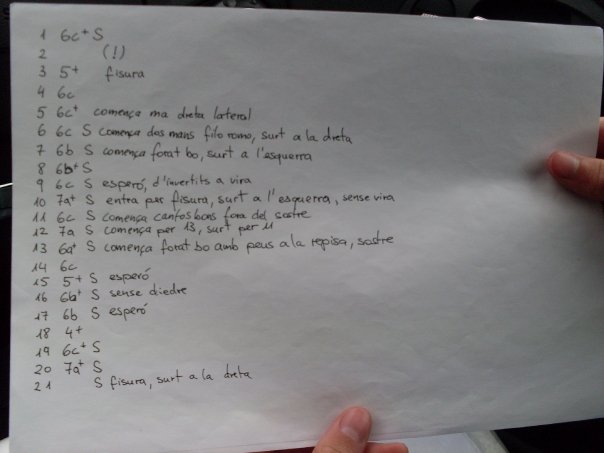 1 6c+ S
2 (!)
3 5+ fisura
4 6c
5 6c+ comença ma dreta lateral
6 6c S comença dos mans filo romo, surt a la dreta
7 6b S comença forat bo, surt a l'esquerra
8 6b+ S
9 6c S esperó, d'invertits a vira
10 7a+ S entra per fisura, surt a l'esquerra, sense vira
11 6c S comença cantos bons fora del sostre
12 7a S comença per 13, surt per 11
13 6a+ S comença forat bo amb peus a la repisa, sostre
14 6c
15 5+ S esperó
16 6b+ S sense diedre
17 6b S esperó
18 4+
19 6c+ S
20 7a+ S
21 S fisura, surt a la dreta